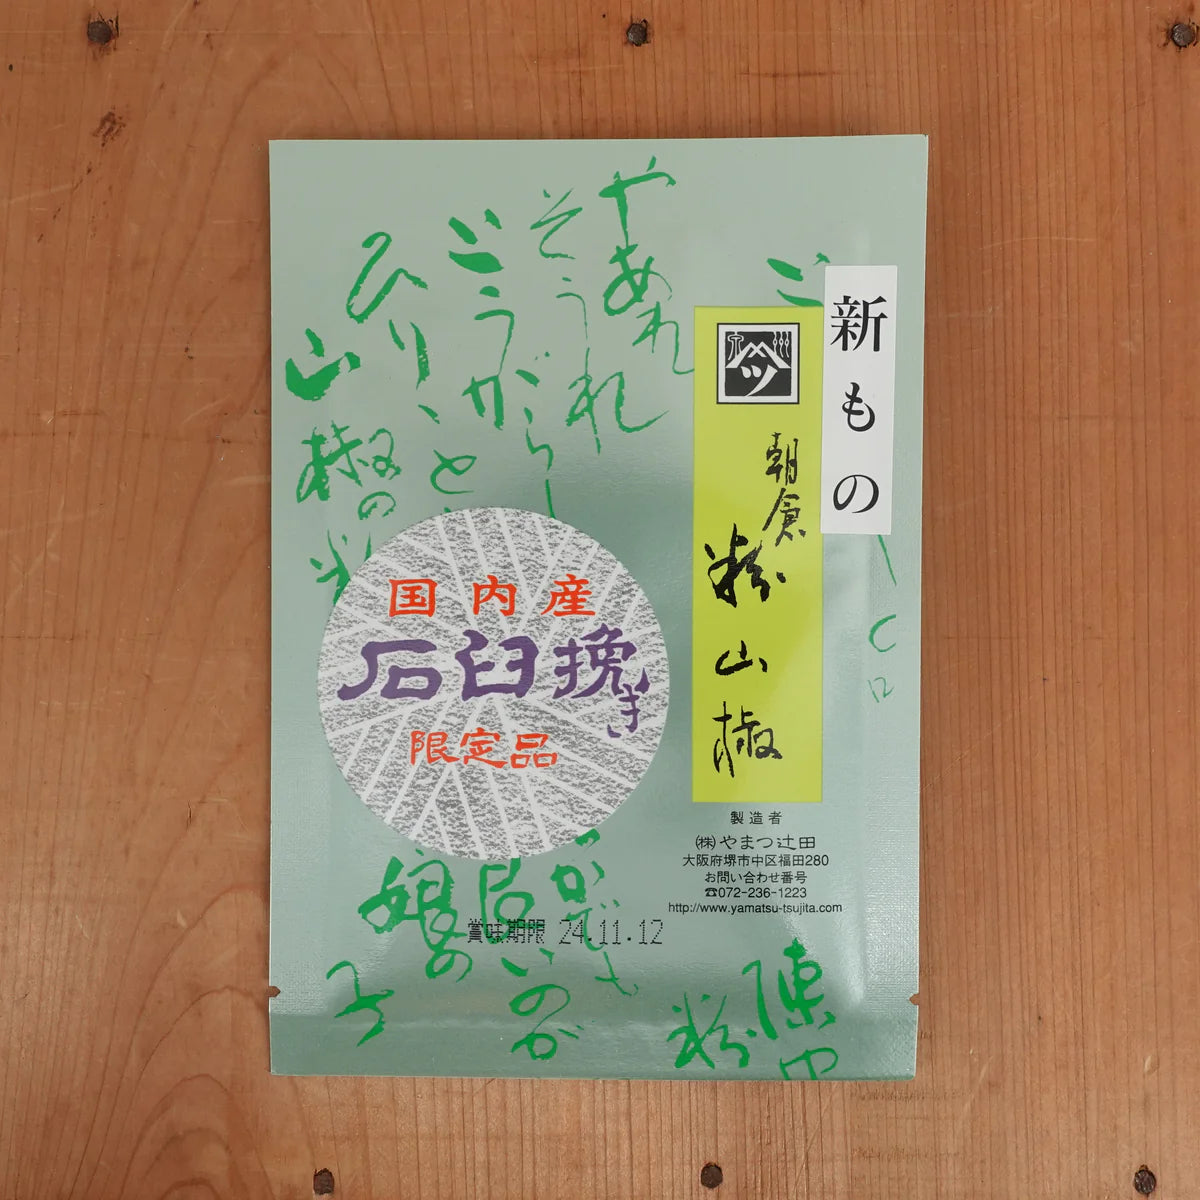 新もの
朝倉
粉山椒
国内産
石臼挽き
限定品
製造者
㈱やまつ辻田
大阪府堺市中区福田280
お問い合わせ番号
☎072-236-1223
http://www.yamatsu-tsujita.com
賞味期限 24.11.12
やあれ
そうれ
ごうがと
ひりゝ
山椒の粉
娘の
粉